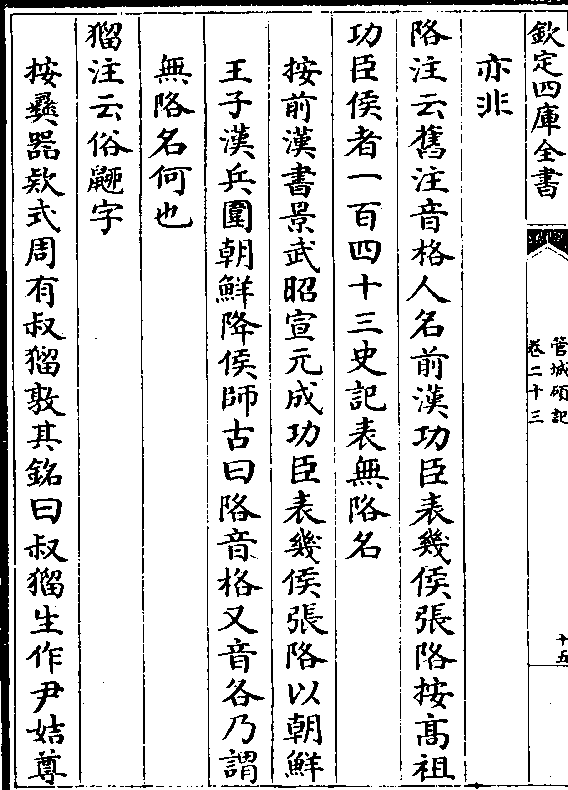 欽定四庫全書
管城碩記
卷二十三
十五
亦非
䧄注云舊注音格人名前漢功臣表幾侯張䧄按高祖
功臣侯者一百四十三史記表無䧄名
按前漢書景武昭宣元成功臣表幾侯張䧄以朝鮮
王子漢兵圍朝鮮降侯師古曰䧄音格又音各乃謂
無䧄名何也
㺉注云俗鼶字
按彞器欵式周有叔㺉敦其銘曰叔㺉生作尹姞尊